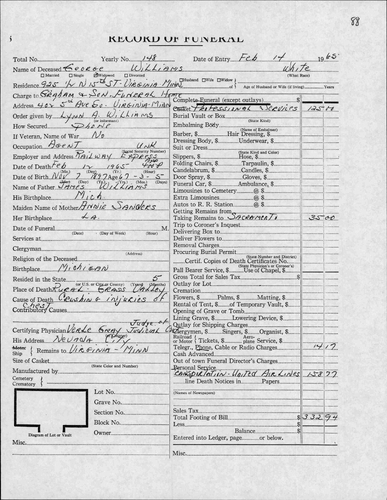 88
RECORD OF FUNERAL
Total No. Yearly No. 148 Date of Entry Feb 14 1965
Name of Deceased George Williams White
(What Race)
Married Single Widowed Divorced Husband Wife Widow
Residence 925 1/2 N 15th St Virginia Minn
Age of Husband or Wife (if living) Years
Charge to Graham & Son Funeral Home
Address 402 5th Ave So. Virginia-Minn
Order given by Lynn A. Williams
How Secured Phone
If Veteran, Name of War No
Occupation Agent Unk
(Social Security Number)
Employer and Address Railway Express
Date of Death Feb 12 1965
Date of Birth Nov 7 1897 Age 67-3-5
Name of Father James Williams
His Birthplace Mich
Maiden Name of Mother Annie Sanders
Her Birthplace La.
Date of Funeral M
(Date) (Day of Week) (Hour)
Services at
Clergyman
(Address)
Religion of the Deceased
Birthplace Michigan
Resided in the State 5
Place of Death Rural - Grass Valley
Cause of Death Crushing injuries of Chest
Contributory Causes
Judge of
Certifying Physician Verle Gray Judicial Ct
His Address Nevada City
Ship Remains to Virginia - Minn
Size of Casket
(State Color and Number)
Manufactured by
Cemetery
Crematory
Lot No.
Grave No.
Section No.
Block No.
Owner
Diagram of Lot or Vault
Misc.
Complete Funeral (except outlays) $
Professional Services 125.00
Burial Vault or Box
(State Kind)
Embalming Body
(Name of Embalmer)
Barber, $ Hair Dressing, $
Dressing Body, $ Underwear, $
Suit or Dress
(State Kind and Color)
Slippers, $ Hose, $
Folding Chairs, $ Tarpaulin, $
Candelabrum, $ Candles, $
Door Spray, $ Gloves, $
Funeral Car, $ Ambulance, $
Limousines to Cemetery @ $
Extra Limousines @ $
Autos to R. R. Station @ $
Getting Remains from
Taking Remains to Sacramento 35.00
Trip to Coroner's Inquest
Delivering Box to
Deliver Flowers to
Removal Charges
Procuring Burial Permit
(State Number and District)
Certif. Copies of Death Certificates No.
(State Physician's or Coroner's)
Pall Bearer Service, $ Use of Chapel, $
Outlay for Lot
Cremation
Flowers, $ Palms, $ Matting, $
Rental of Tent, $ of Temporary Vault, $
Opening of Grave or Tomb
Lining Grave, $ Lowering Device, $
Outlay for Shipping Charges
Clergymen, $ Singers, $ Organist, $
Railroad or Motor Tickets, $ Aeroplane Service, $
Telegr., Phone, Cable or Radio Charges 14.17
Cash Advanced
Out of town Funeral Director's Charges
Personal Service
Transportation - United Air Lines 158.77
line Death Notices in Papers
(Names of Newspapers)
Sales Tax
Total Footing of Bill $ 332.94
Less $
Balance $
Entered into Ledger, page or below.
Misc.